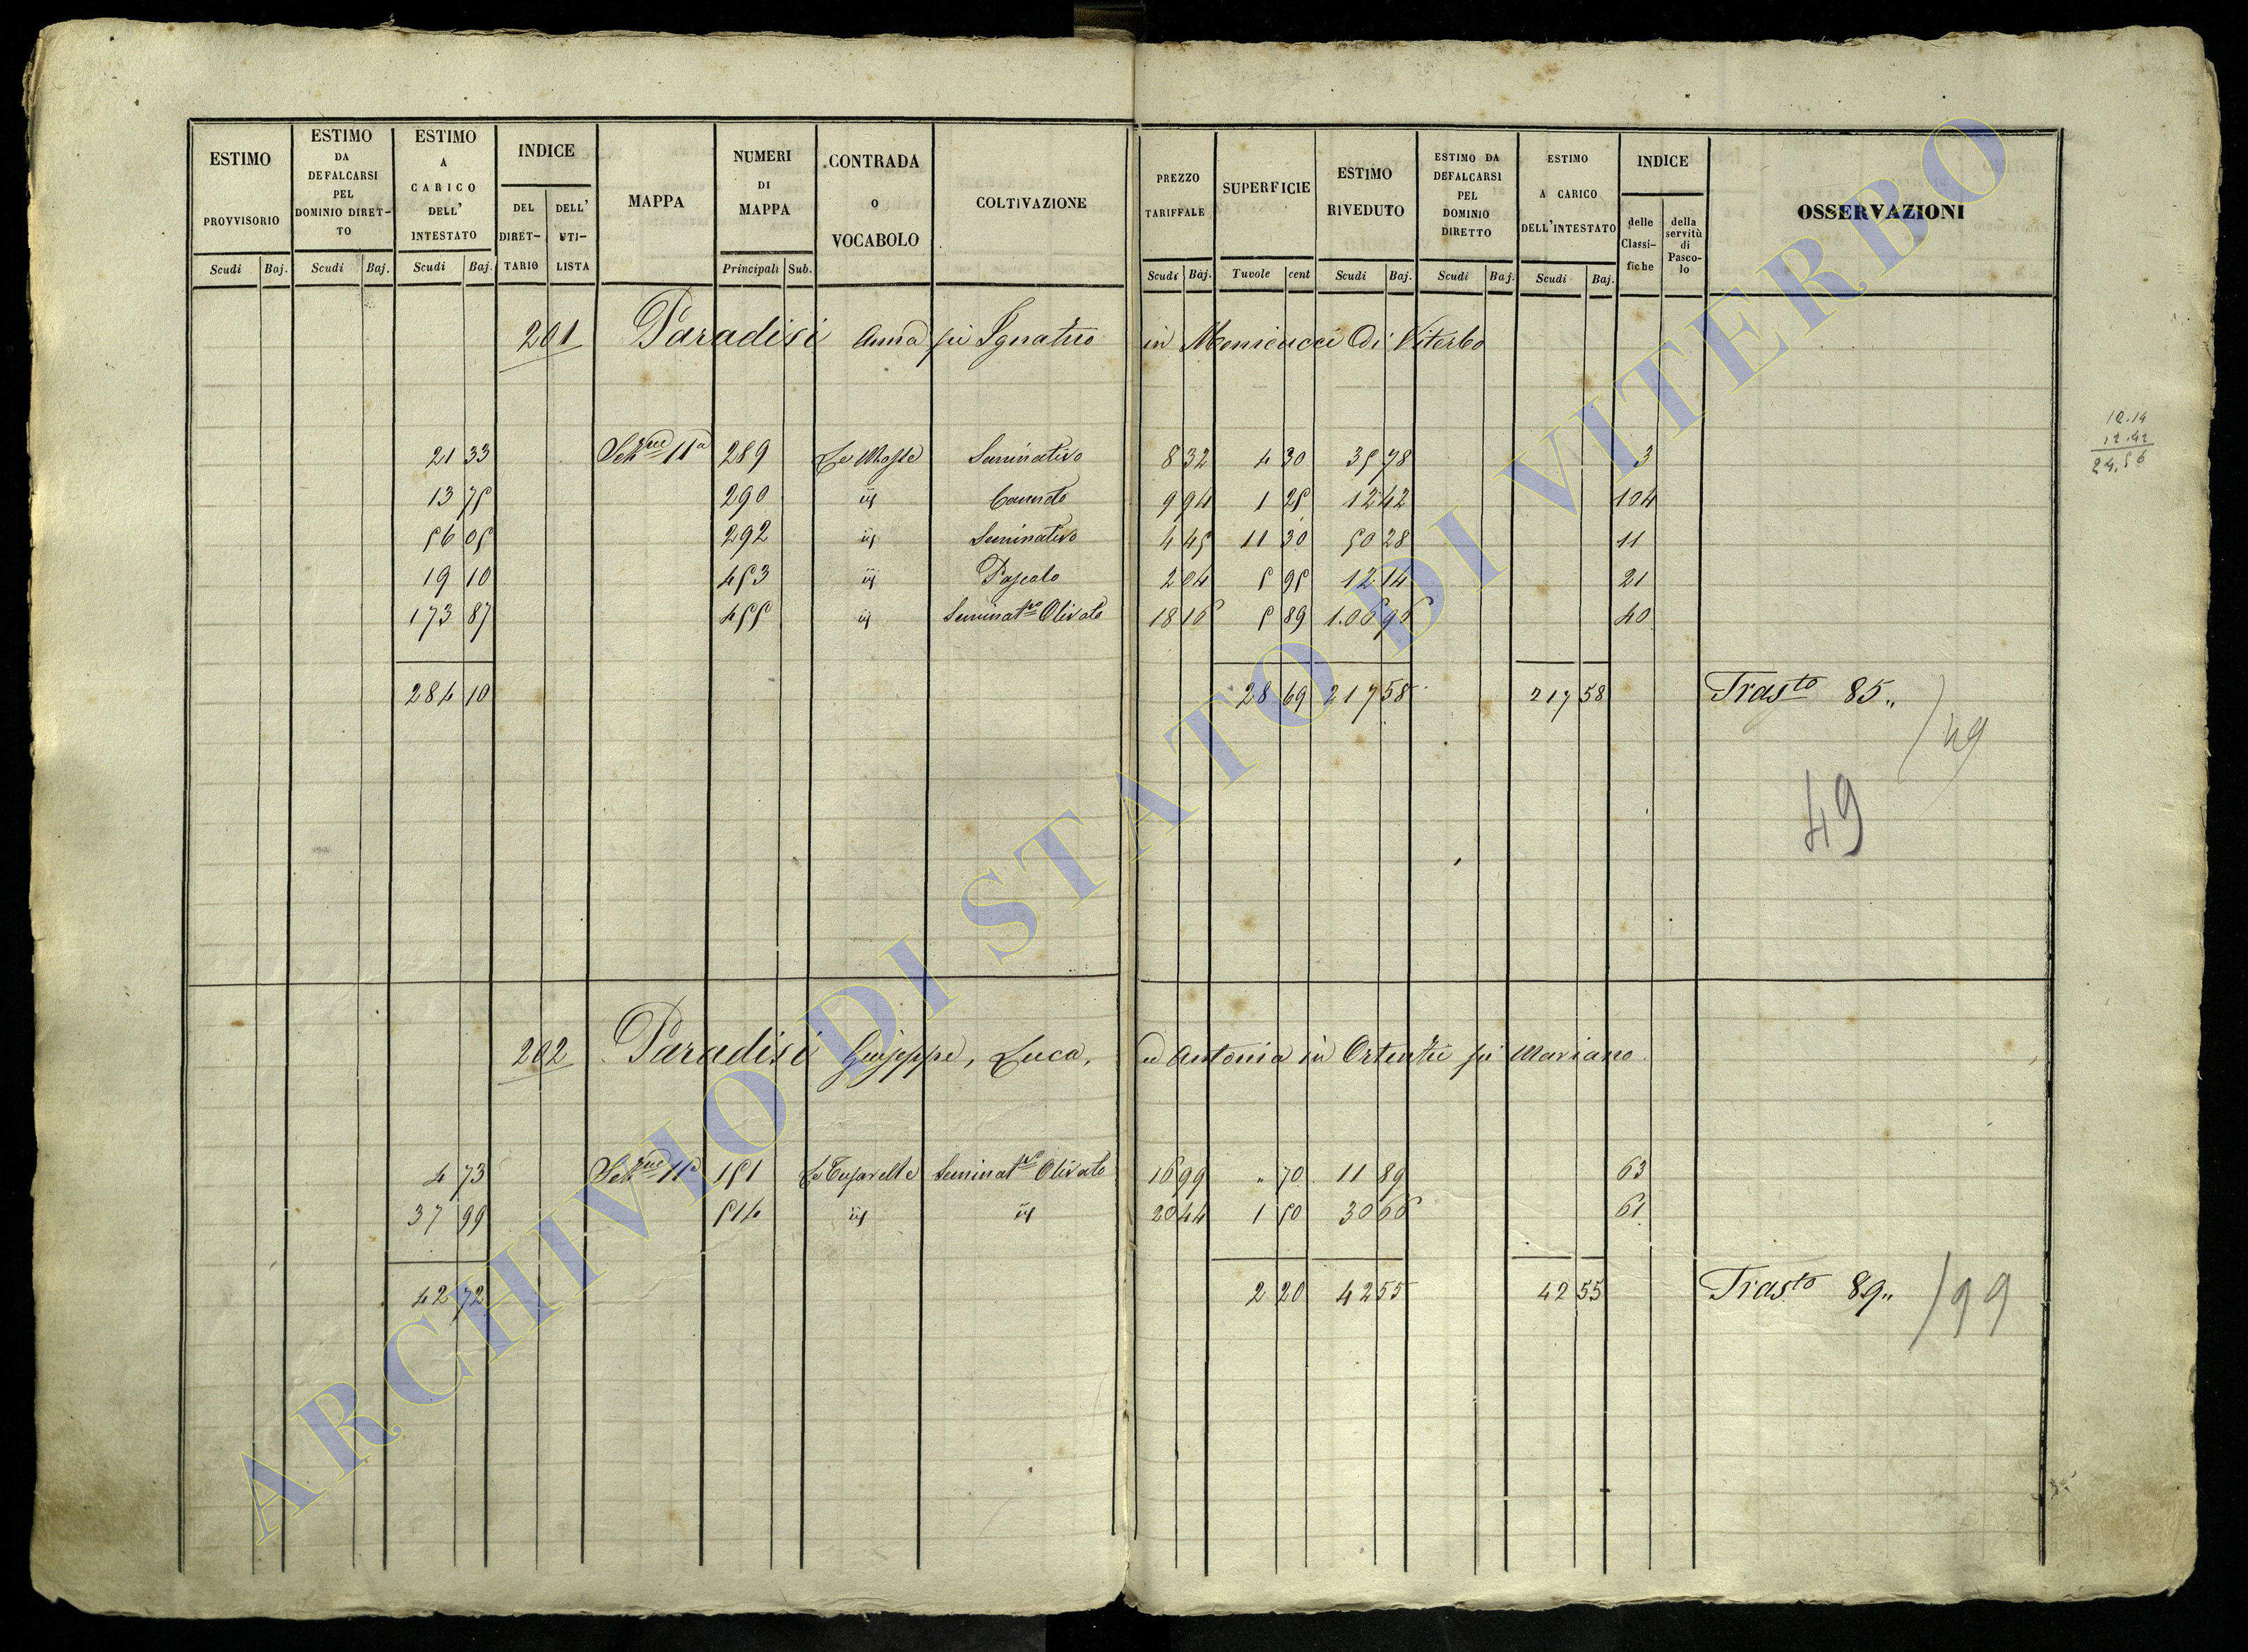 ESTIMO PROVVISORIO
Scudi Baj.
ESTIMO DA DEFALCARSI PEL DOMINIO DIRET-TO
Scudi Baj.
ESTIMO A CARICO DELL' INTESTATO
Scudi Baj.
INDICE
DEL DIRET-TARIO
DELL' UTI-LISTA
MAPPA
NUMERI DI MAPPA
Principali Sub.
CONTRADA o VOCABOLO
COLTIVAZIONE
PREZZO TARIFFALE
Scudi Baj.
SUPERFICIE
Tavole cent
ESTIMO RIVEDUTO
Scudi Baj.
ESTIMO DA DEFALCARSI PEL DOMINIO DIRETTO
Scudi Baj.
ESTIMO A CARICO DELL'INTESTATO
Scudi Baj.
INDICE
delle Classi-fiche
della servitù di Pasco-lo
OSSERVAZIONI
201 Paradisi Anna fù Ignazio in Menicucci di Viterbo
21 33 Sez.ne 11a 289 Seminativo 8 32 4 30 35 78 3
13 75 290 Canneto 9 94 1 25 12 42 104
56 05 292 Seminativo 4 45 11 30 50 28 11
19 10 453 Pascolo 2 04 5 95 12 14 21
173 87 455 Seminat.vo Olivato 18 16 5 89 1.06 96 40
284 10 28 69 217 58 217 58 Trasto 85"
/49
49
12.14
12.42
24.56
202 Paradisi Giuseppe, Luca, ed Antonia in fù Mariano
4 73 Sez.ne 11a 151 Seminat.vo Olivato 16 99 " 70 11 89 63
37 99 514 20 44 1 50 30 66 61
42 72 2 20 42 55 42 55 Trasto 89"
/99
ARCHIVIO DI STATO DI VITERBO